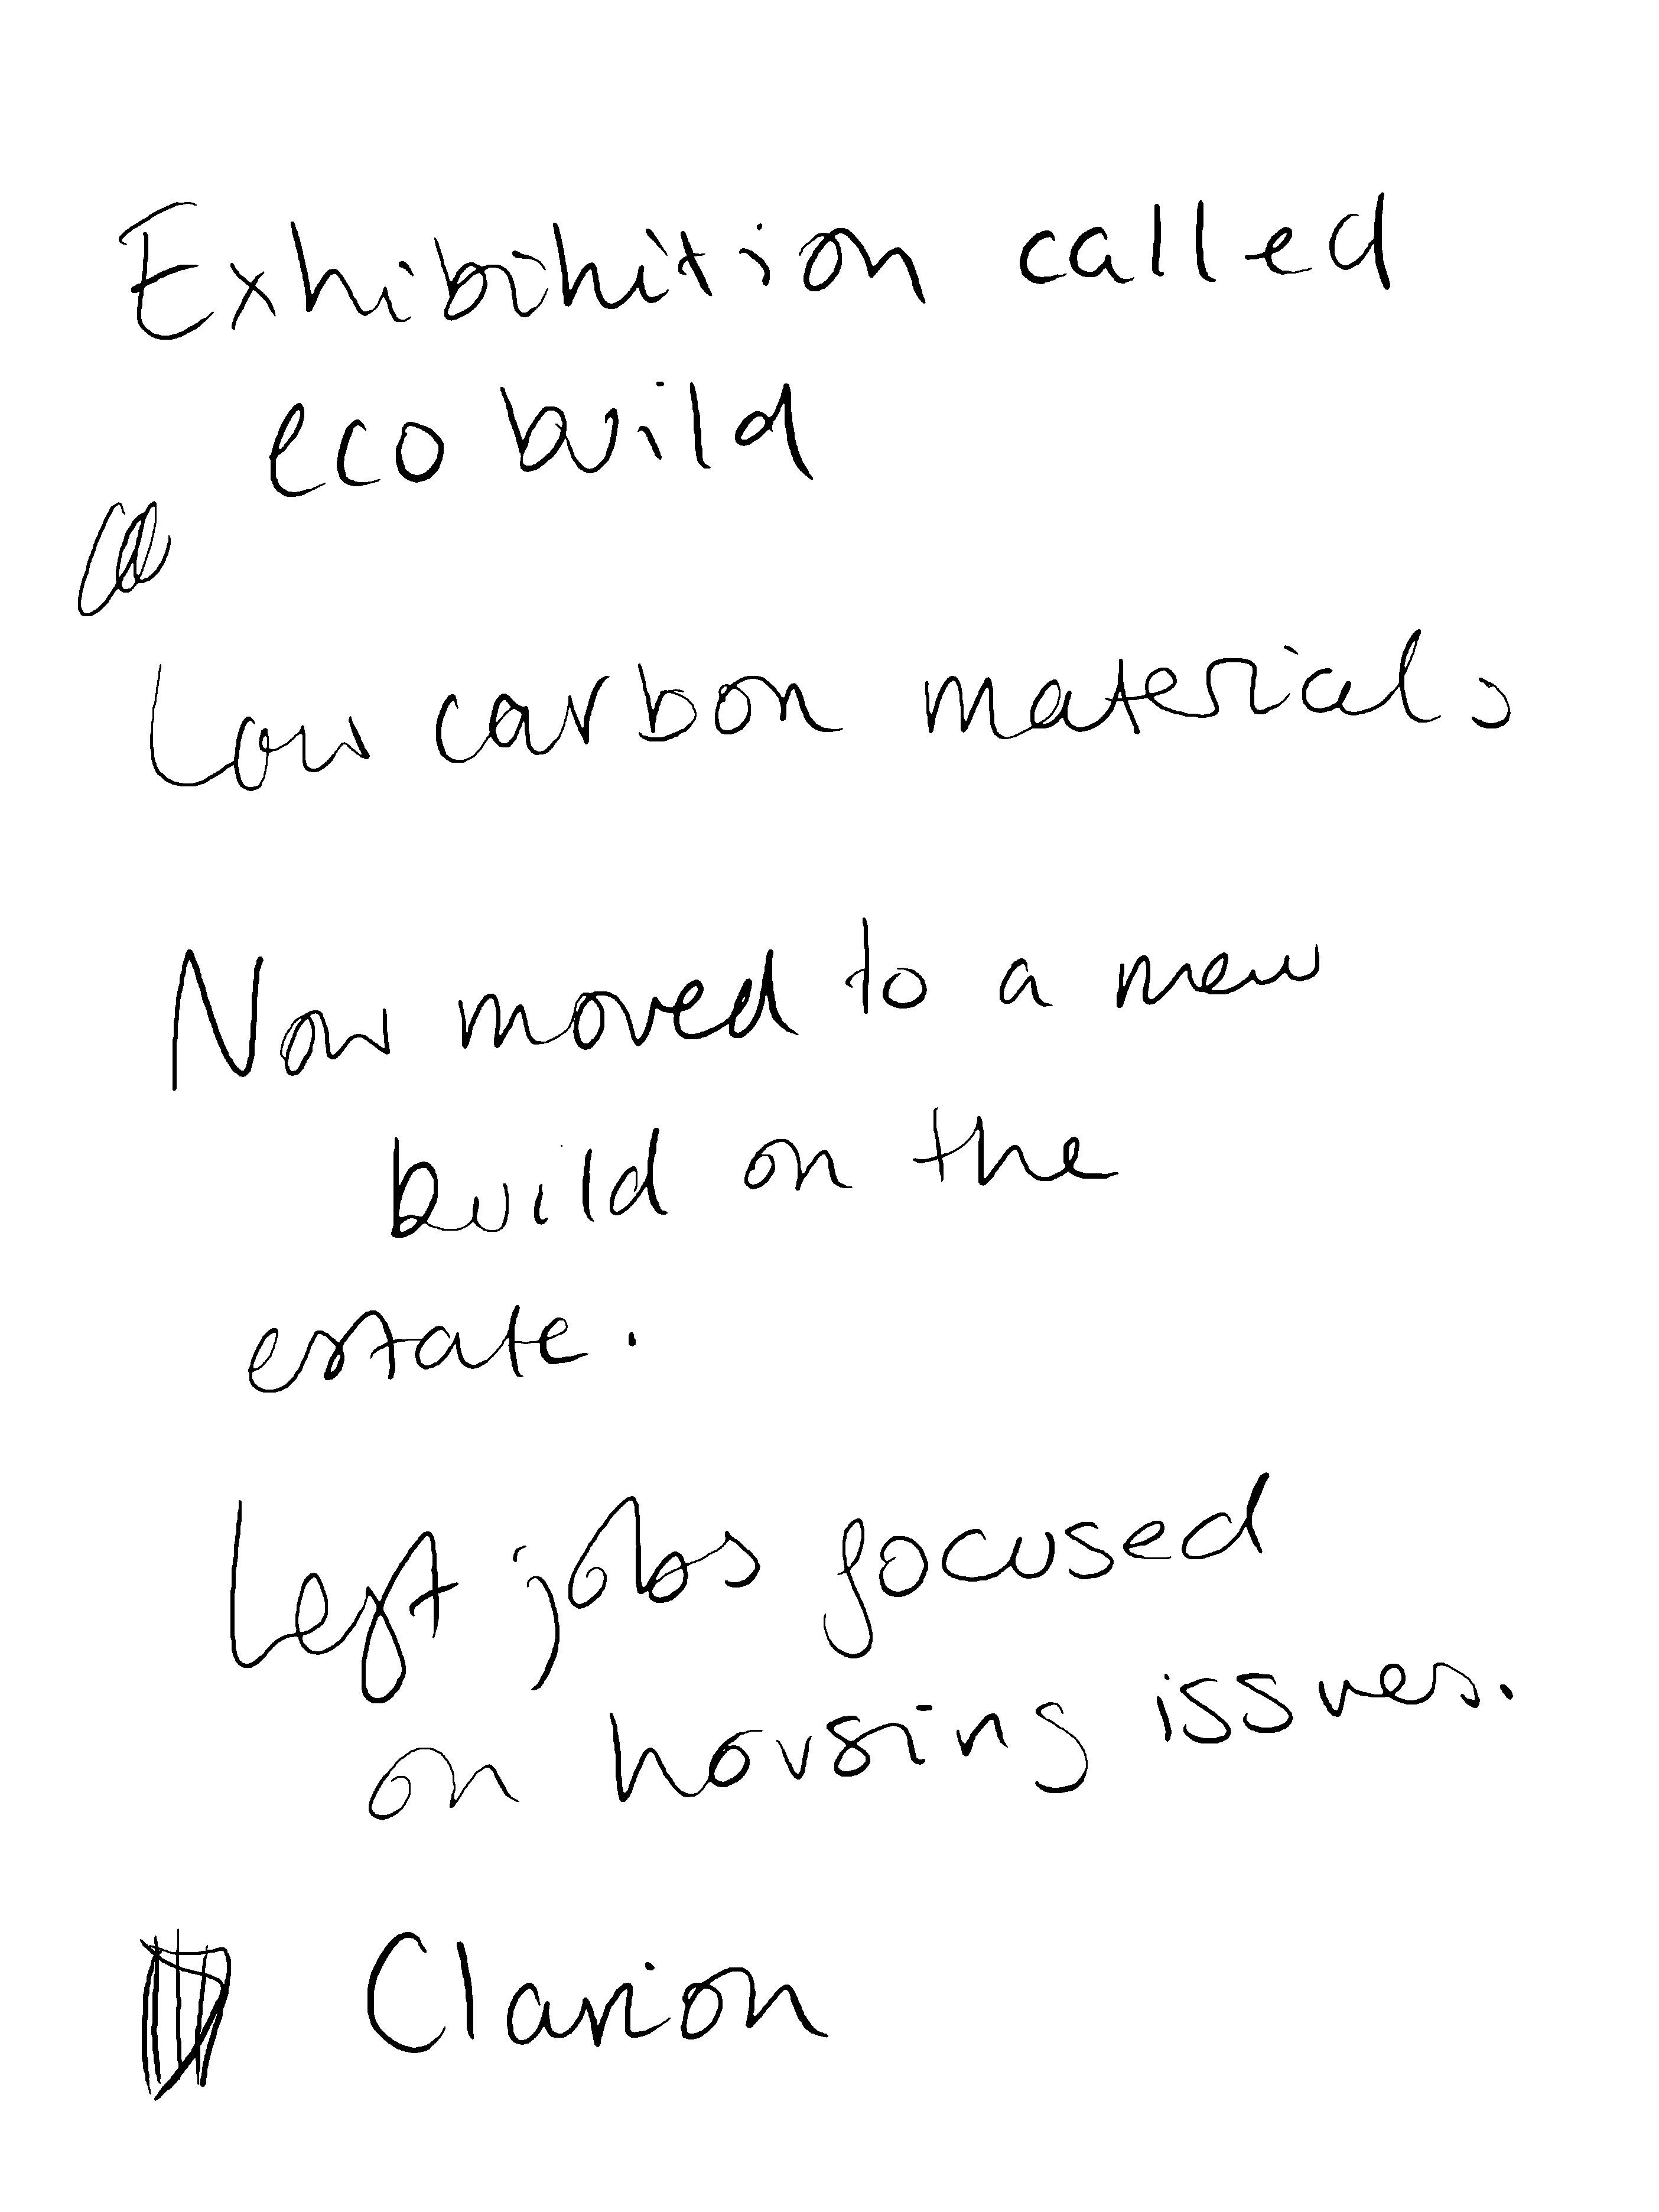 Exhibition called
eco build
Low carbon materials
Now moved to a new
build on the
estate.
Left jobs focused
on housing issues.
Clarion